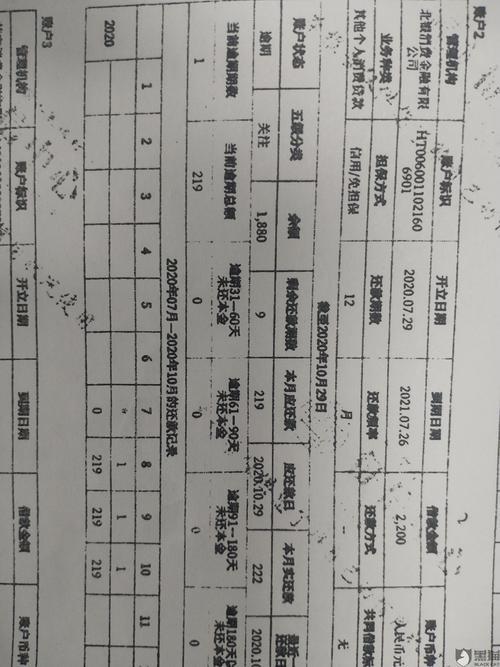 账户2
管理机构 账户标识 开立日期 到期日期 借款金额 账户币种
北银消费金融有限公司 HT0060011021606901 2020.07.29 2021.07.26 2,200 人民币元
业务种类 担保方式 还款期数 还款频率 还款方式 共同借款标
其他个人消费贷款 信用/免担保 12 月 -- 无
截至2020年10月29日
账户状态 五级分类 余额 剩余还款期数 本月应还款 应还款日 本月实还款 最近一次还款日期
逾期 关注 1,880 9 219 2020.10.29 222 2020.10.
当前逾期期数 当前逾期总额 逾期31—60天未还本金 逾期61—90天未还本金 逾期91—180天未还本金 逾期180天以
1 219 0 0 0
2020年07月—2020年10月的还款记录
1 2 3 4 5 6 7 8 9 10 11
2020 * 1 1 1
0 219 219 219
账户3
管理机构 账户标识 开立日期 到期日期 借款金额 账户币种
黑猫